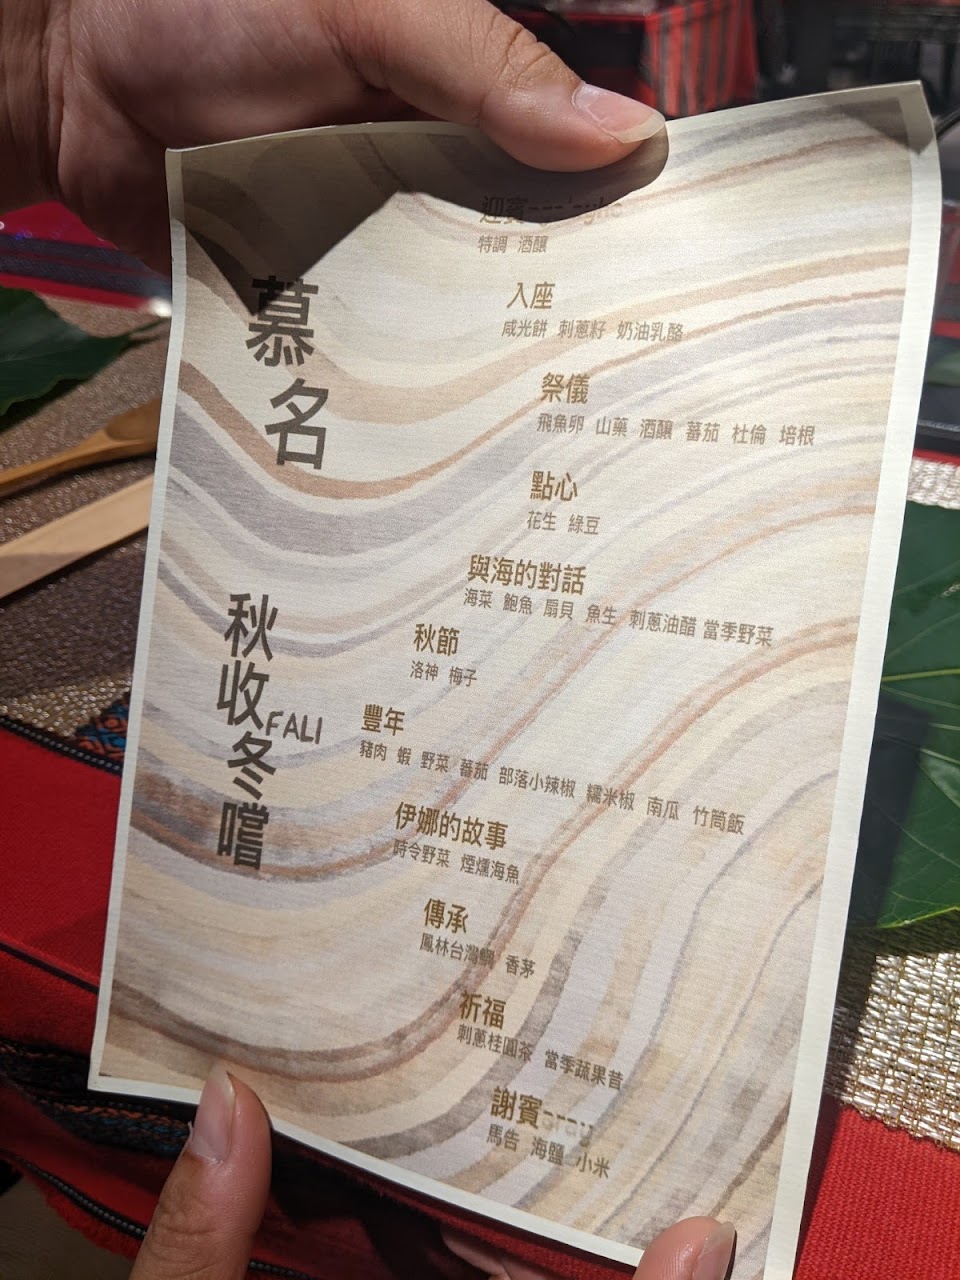 慕名
秋收冬嚐
FALI
迎賓
特調 酒釀
入座
咸光餅 刺蔥籽 奶油乳酪
祭儀
飛魚卵 山藥 酒釀 蕃茄 杜倫 培根
點心
花生 綠豆
與海的對話
海菜 鮑魚 扇貝 魚生 刺蔥油醋 當季野菜
秋節
洛神 梅子
豐年
豬肉 蝦 野菜 蕃茄 部落小辣椒 糯米椒 南瓜 竹筒飯
伊娜的故事
時令野菜 煙燻海魚
傳承
鳳林台灣鯛 香茅
祈福
刺蔥桂圓茶 當季蔬果昔
謝賓-aray
馬告 海鹽 小米